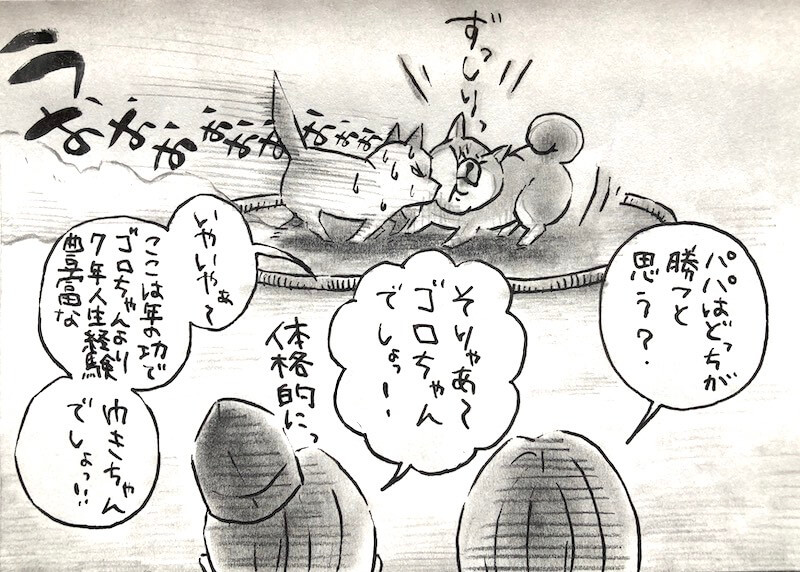 ずっしりっ
うおおおおおおおおお
パパはどっちが
勝つと
思う?
そりゃあ〜
ゴロちゃん
でしょっ!!
体格的にっ
いやいやぁ〜
ここは年の功で
ゴロちゃんより
7年人生経験
豊富な
ゆきちゃん
でしょっ!!